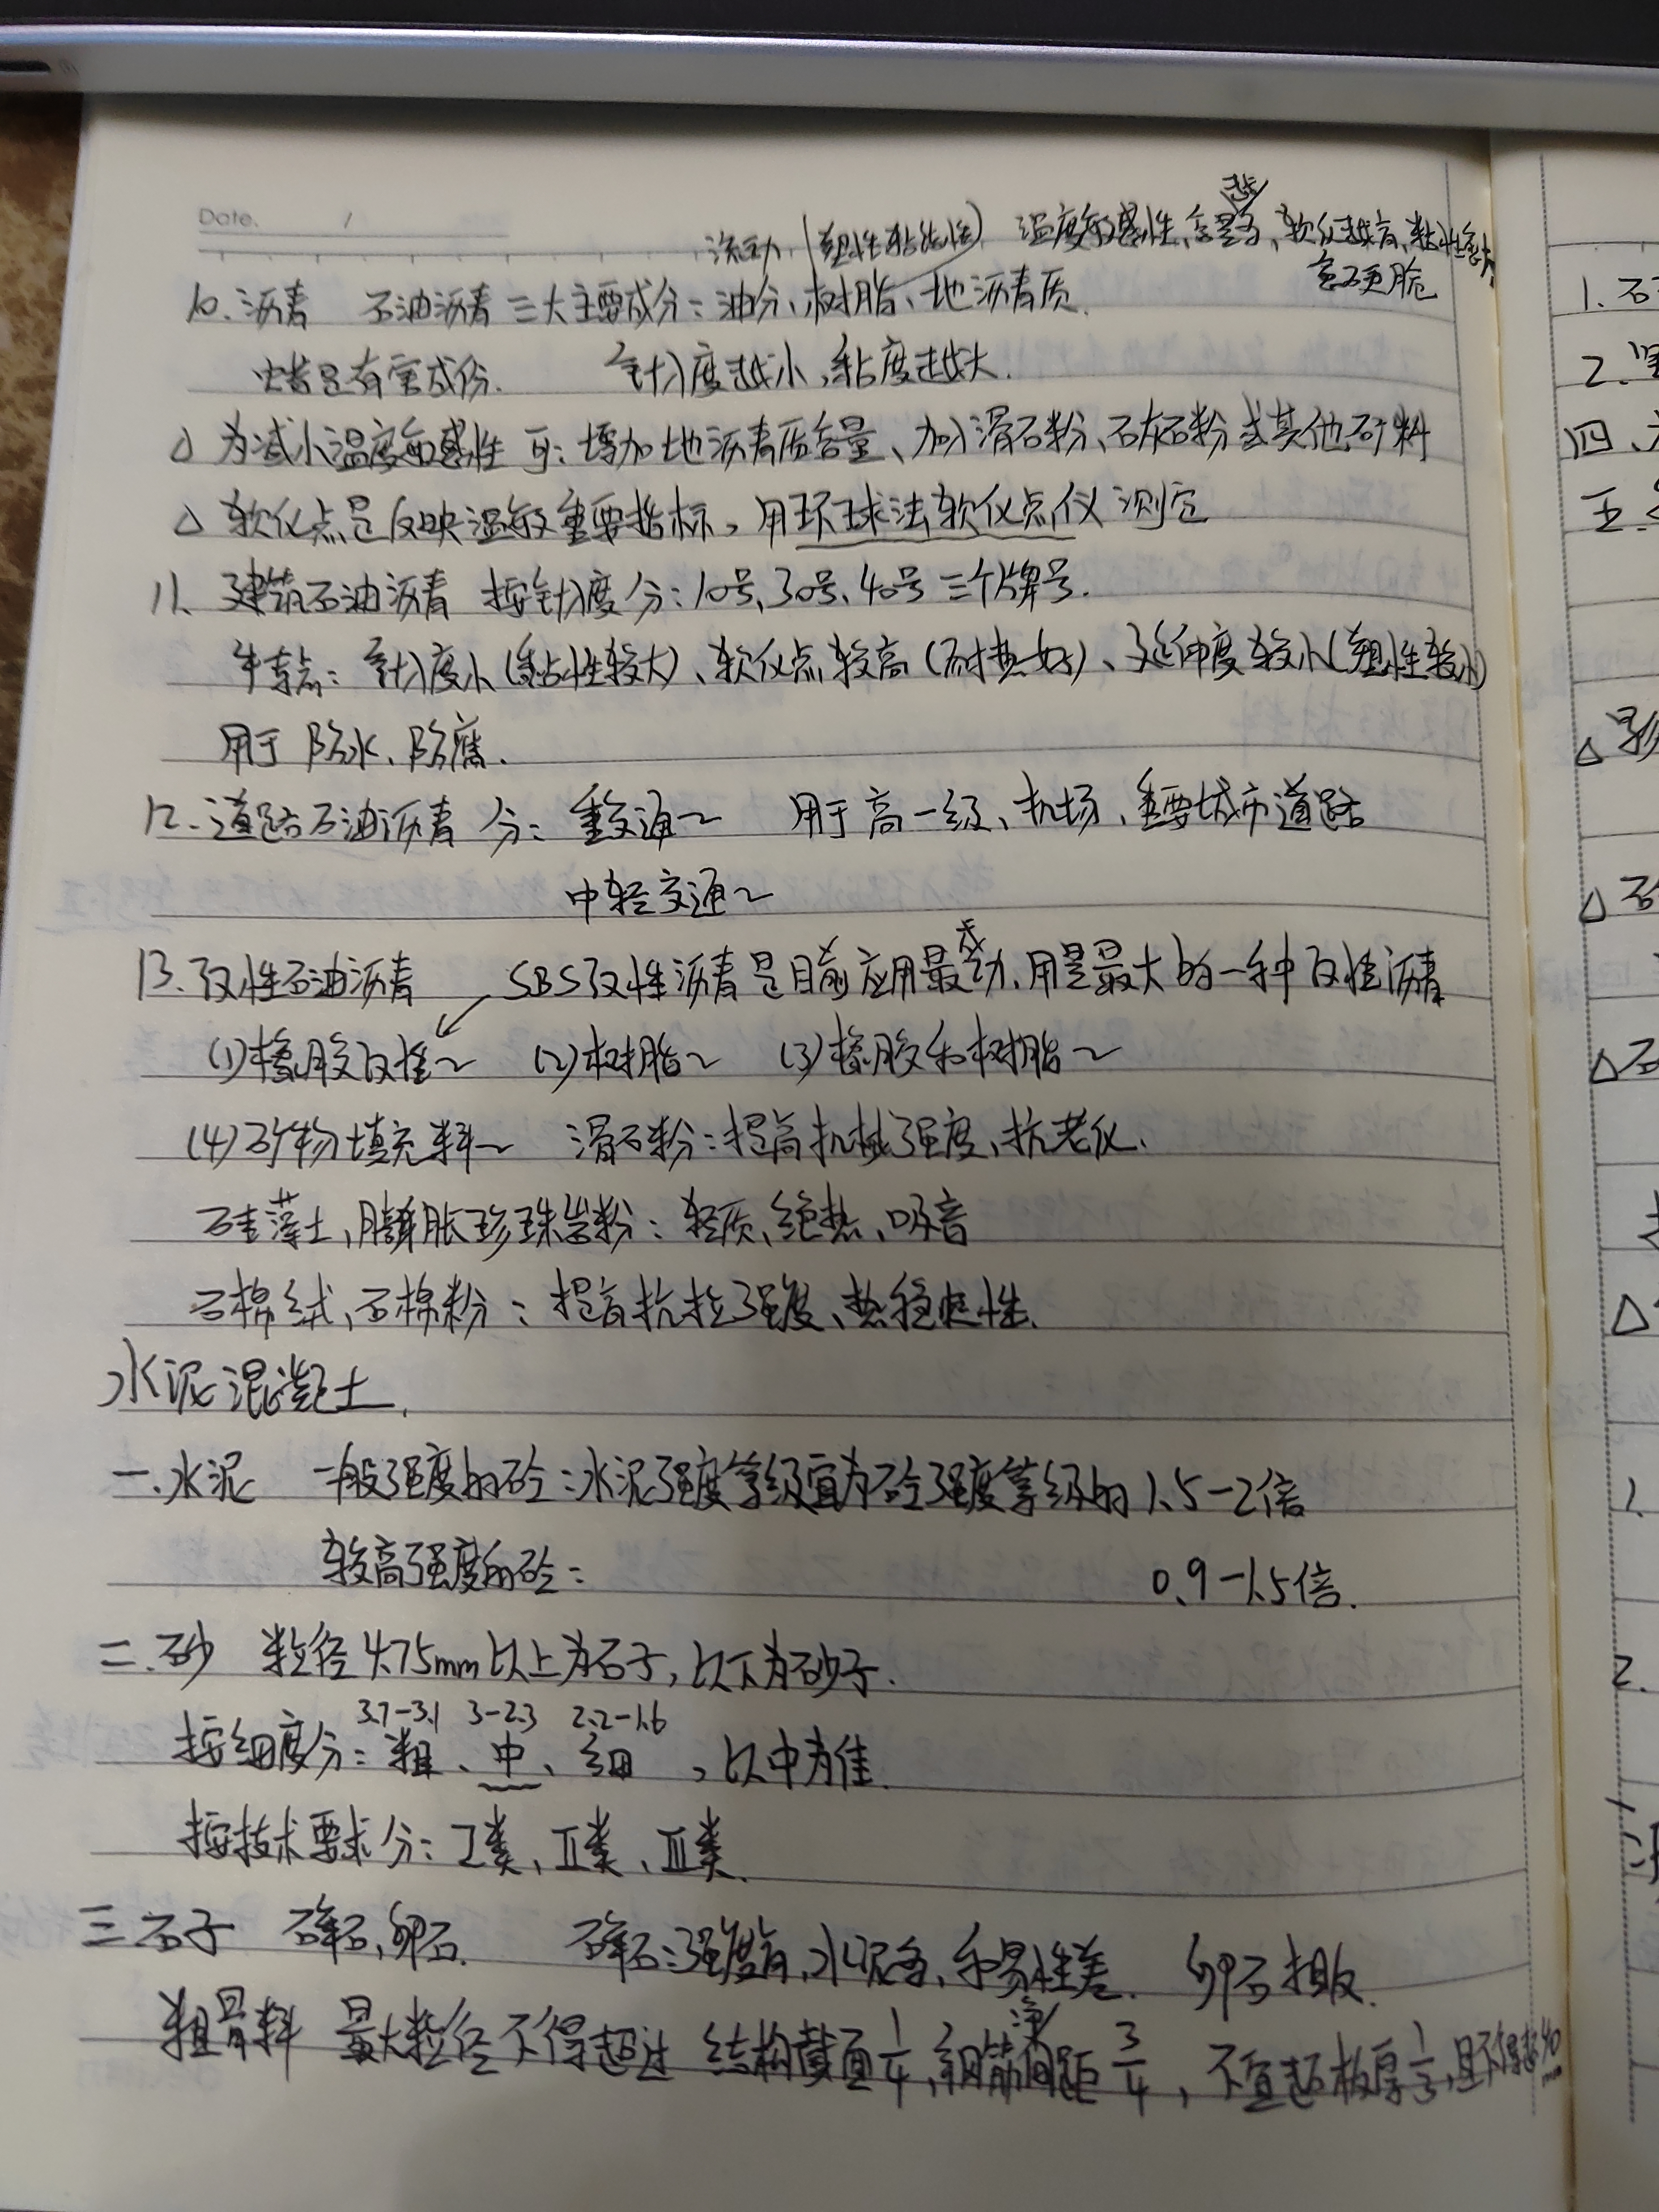 Date. /
越
流动 (塑性粘结性) 温度敏感性、含量多、软化越高、粘性愈大
愈硬脆
10. 沥青 石油沥青三大主要成分：油分、树脂、地沥青质.
蜡是有害成份. 针入度越小，黏度越大.
△ 为减小温度敏感性 可：增加地沥青质含量、加入滑石粉、石灰石粉或其他矿料
△ 软化点是反映温敏重要指标，用环球法软化点仪测定
11. 建筑石油沥青 按针入度分：10号、30号、40号三个牌号.
特点：针入度小(黏性较大)、软化点较高(耐热好)、延伸度较小(塑性较小)
用于防水、防腐.
12. 道路石油沥青 分：重交通～ 用于高一级、机场、重要城市道路
中轻交通～
13. 改性石油沥青 SBS改性沥青是目前应用最成功、用量最大的一种改性沥青
(1)橡胶改性～ (2)树脂～ (3)橡胶和树脂～
(4)矿物填充料～ 滑石粉：提高机械强度、抗老化.
硅藻土、膨胀珍珠岩粉：轻质、绝热、吸音
石棉绒、石棉粉：提高抗拉强度、热稳定性.
水泥混凝土.
一.水泥 一般强度的砼：水泥强度等级宜为砼强度等级的1.5-2倍
较高强度的砼： 0.9-1.5倍.
二.砂 粒径4.75mm以上为石子，以下为砂子.
3.7-3.1 3-2.3 2.2-1.6
按细度分：粗、中、细，以中为佳.
按技术要求分：I类、II类、III类.
三.石子 碎石,卵石. 碎石：强度高,水泥多,和易性差. 卵石相反.
净
粗骨料 最大粒径不得超过 结构截面1/4，钢筋间距3/4，不宜超板厚1/3,且不得超40mm
1.石
2.
四、
五.
△影
△石
△石
△
1.
2.